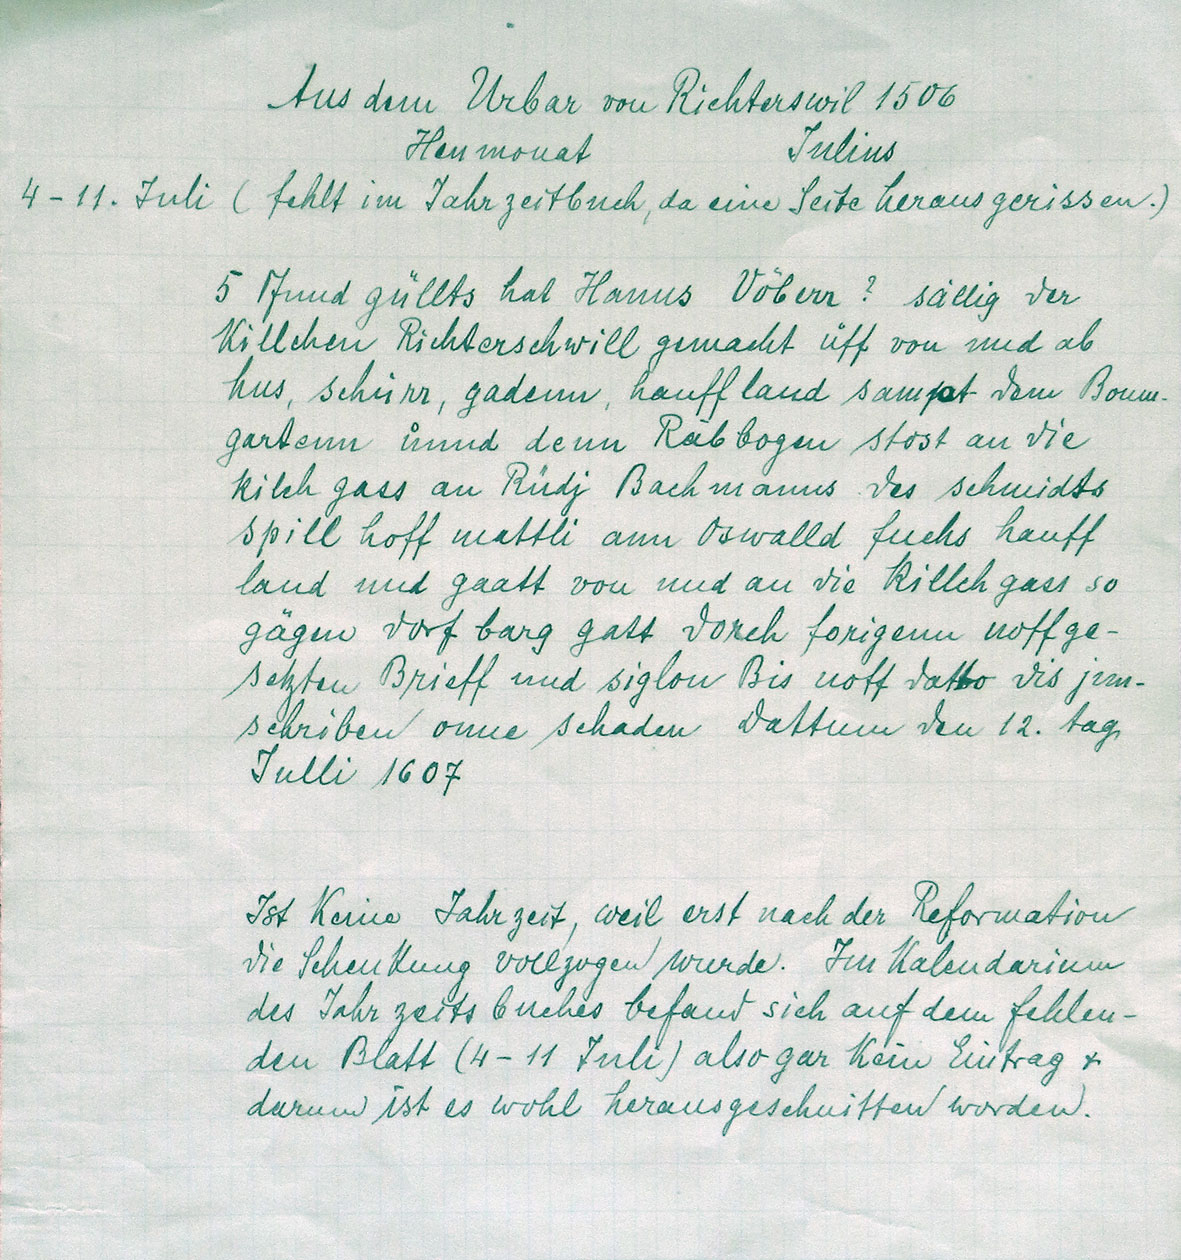 Aus dem Urbar von Richterswil 1506
Heumonat Julius
4-11. Juli (fehlt im Jahrzeitbuch, da eine Seite herausgerissen.)
5 Pfund güllts hat Hanns Vöberr? sällig der
Killchen Richterschwill gemacht üff von und ab
hus, schürr, gadenn, hanff land sampt dem Boum-
gartenn ůnnd denn Räbbogen stost an die
kilch gass an Rüdj Bachmanns des schmidts
spill hoff mattli ann Oswalld fuchs hanff
land und gaatt von und an die Killch gass so
gägen dorf barg gatt dorch forigenn uoffge-
setzten Brieff und siglon Bis uoff datto dis jnn-
schriben onne schaden Dattum den 12. tag
Julli 1607
Ist Keine Jahrzeit, weil erst nach der Reformation
die Schenkung vollzogen wurde. Im Kalendarium
des Jahrzeitsbuches befand sich auf dem fehlen-
den Blatt (4-11 Juli) also gar Kein Eintrag &
darum ist es wohl herausgeschnitten worden.